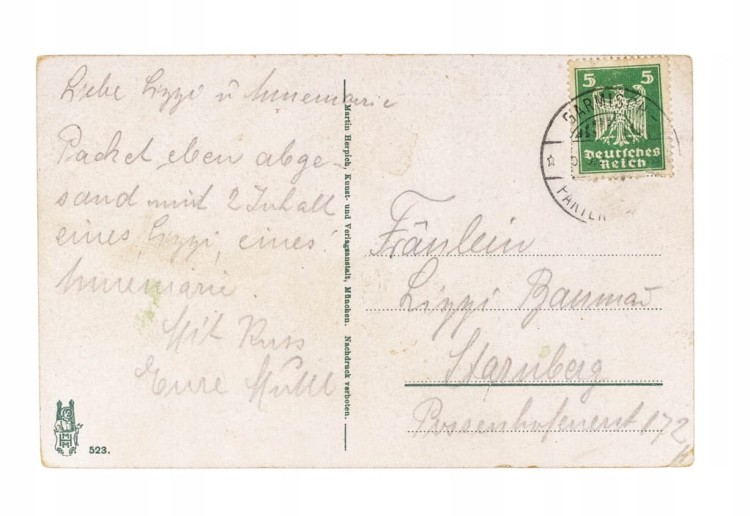 Liebe Lizzi u Annemarie
Packet eben abge-
sand mit 2 Inhalt
eines Lizzi, eines
Annemarie.
Mit Kuss
Eure
Martin Herpich, Kunst- und Verlagsanstalt, München. Nachdruck verboten.
523.
5 5
Deutsches
Reich
GARMIS
PARTEN
Fräulein
Lizzi
Starnberg
172